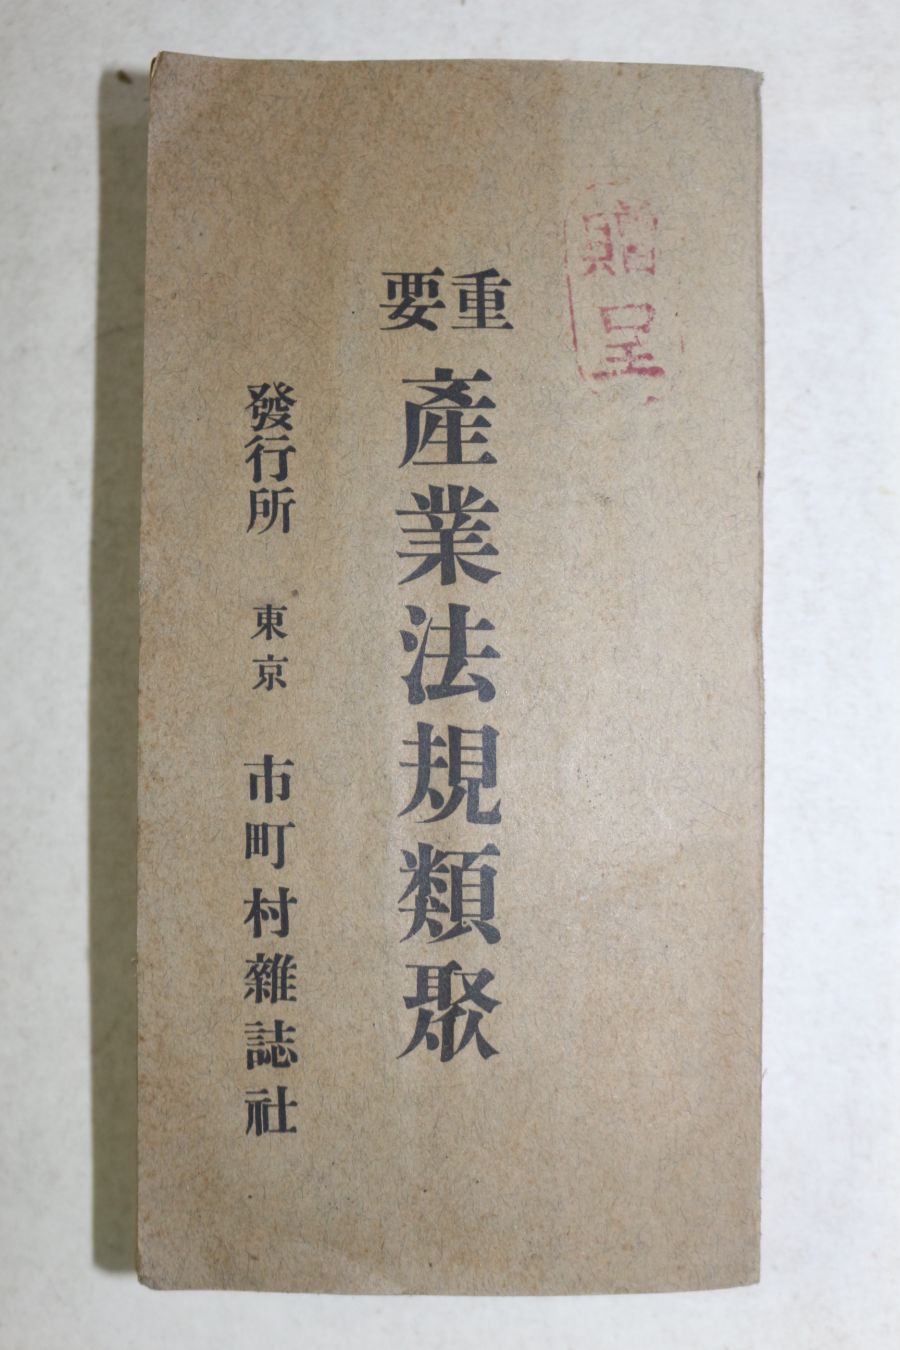 贈呈
重要
產業法規類聚
發行所 東京 市町村雜誌社